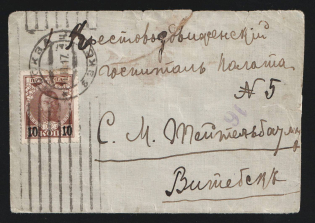 Крестовоздвиженский
госпиталь палата
№ 5
С. М. Тейтельбауму
Витебскъ
10 10
КОП